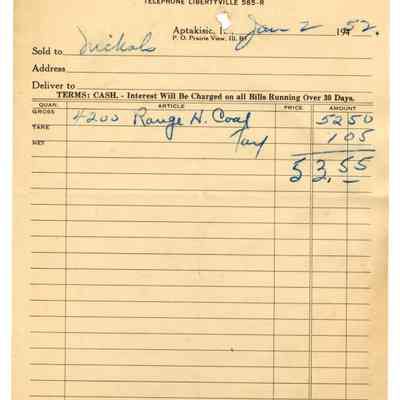 TELEPHONE LIBERTYVILLE 585-R
Aptakisic, Jan 2 1952.
P. O. Prairie View, Ill.
Sold to Nickols
Address
Deliver to
TERMS: CASH. - Interest Will Be Charged on all Bills Running Over 30 Days.
QUAN. ARTICLE PRICE AMOUNT
GROSS 4200 Range H. Coal 52 50
TARE Tax 1 05
NET 53.55